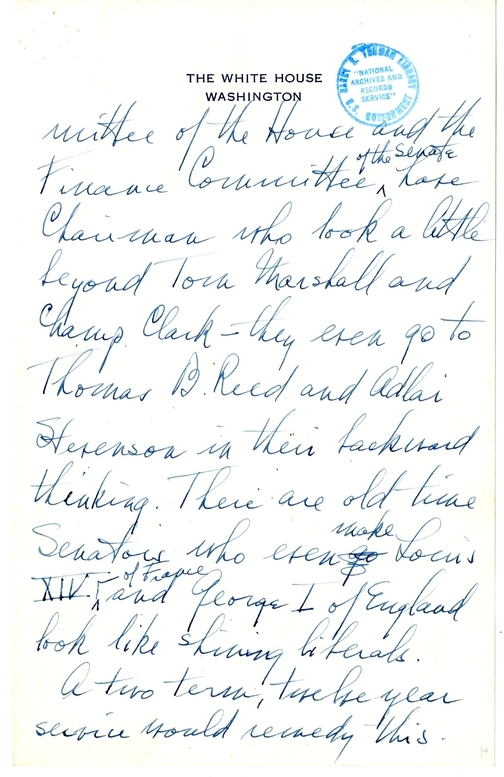 THE WHITE HOUSE
WASHINGTON
HARRY S. TRUMAN LIBRARY
"NATIONAL
ARCHIVES AND
RECORDS
SERVICE"
U.S. GOVERNMENT
mittee of the House and the
of the Senate
Finance Committee ^ have
Chairman who look a little
beyond Tom Marshall and
Champ Clark – they even go to
Thomas B. Reed and Adlai
Stevenson in their backward
thinking. There are old time
make
Senators who even go Louis
of France
XIV ^ and George I of England
look like shining liberals.
A two term, twelve year
service would remedy this.